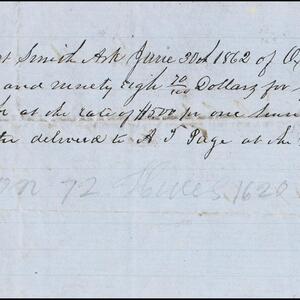 Smith Ark June 30th 1862 of
and ninety eigh 70/100 Dollars for
at the rate of $500 pr one hun
delivered to A J Page at the
72 Hides 1620